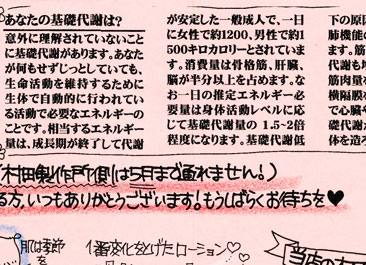 あなたの基礎代謝は?
意外に理解されていないこと
に基礎代謝があります。あなた
が何もせずじっとしていても、
生命活動を維持するために
生体で自動的に行われてい
る活動で必要なエネルギーの
ことです。相当するエネルギー
量は、成長期が終了して代謝
が安定した一般成人で、一日
に女性で約1200、男性で約1
500キロカロリーとされていま
す。消費量は骨格筋、肝臓、
脳が半分以上を占めます。な
お一日の推定エネルギー必
要量は身体活動レベルに応
じて基礎代謝量の 1.5~2倍
程度になります。基礎代謝低
下の原因
肺機能の
ます。筋
代謝も增
筋肉量
横隔膜な
で心臓や
礎代謝が
体を造ろ
(木田製作所側は5月まで通れません!)
る方、いつもありがとうございます!もうしばらくお待ちを♥
肌は季節
を
1番変化をとげたローション♡♡
当店の